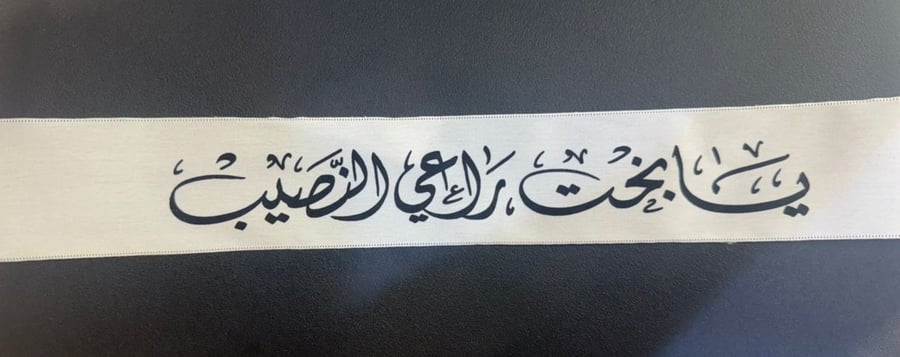 يا بخت راعي النَّصيب